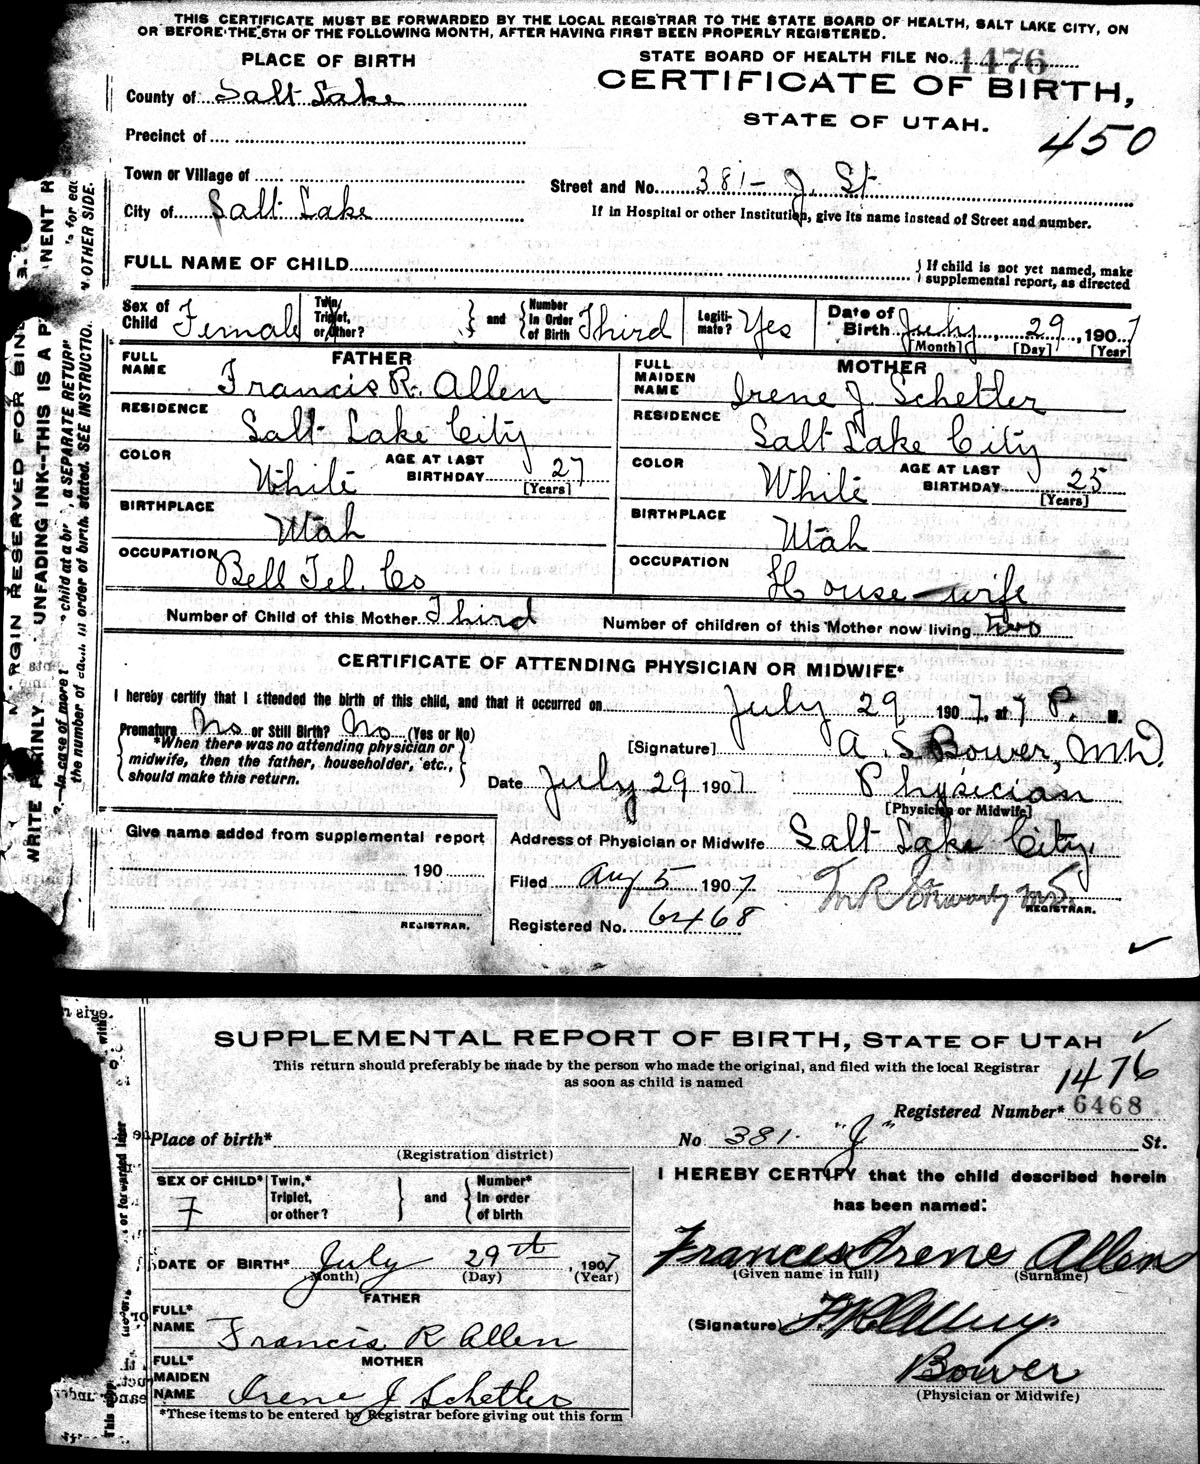 THIS CERTIFICATE MUST BE FORWARDED BY THE LOCAL REGISTRAR TO THE STATE BOARD OF HEALTH, SALT LAKE CITY, ON
OR BEFORE THE 5TH OF THE FOLLOWING MONTH, AFTER HAVING FIRST BEEN PROPERLY REGISTERED.
PLACE OF BIRTH
STATE BOARD OF HEALTH FILE No. 1476
CERTIFICATE OF BIRTH,
STATE OF UTAH.
450
County of Salt Lake
Precinct of
Town or Village of
Street and No. 381- J. St
City of Salt Lake
If in Hospital or other Institution, give its name instead of Street and number.
FULL NAME OF CHILD
If child is not yet named, make
supplemental report, as directed
Sex of Child Female
Twin, Triplet, or Other?
and
Number in Order of Birth Third
Legitimate? Yes
Date of Birth July 29, 1907
[Month] [Day] [Year]
FATHER
FULL NAME Francis R. Allen
RESIDENCE Salt Lake City
COLOR White
AGE AT LAST BIRTHDAY 27
[Years]
BIRTHPLACE Utah
OCCUPATION Bell Tel. Co
MOTHER
FULL MAIDEN NAME Irene J. Schetler
RESIDENCE Salt Lake City
COLOR White
AGE AT LAST BIRTHDAY 25
[Years]
BIRTHPLACE Utah
OCCUPATION House-wife
Number of Child of this Mother Third
Number of children of this Mother now living two
CERTIFICATE OF ATTENDING PHYSICIAN OR MIDWIFE*
I hereby certify that I attended the birth of this child, and that it occurred on July 29, 1907, at 7 P. M.
Premature No or Still Birth? No (Yes or No)
*When there was no attending physician or
midwife, then the father, householder, etc.,
should make this return.
[Signature] A. S. Bower, M.D.
Date July 29 1907
Physician
[Physician or Midwife]
Give name added from supplemental report
190
REGISTRAR.
Address of Physician or Midwife Salt Lake City.
Filed Aug 5 1907
REGISTRAR.
Registered No. 6468
RGIN RESERVED FOR BIN
WRITE PLAINLY UNFADING INK--THIS IS A P NENT R
.--In case of more t child at a bir , a SEPARATE RETURN
the number of each in order of birth, stated. SEE INSTRUCTIO OTHER SIDE.
SUPPLEMENTAL REPORT OF BIRTH, STATE OF UTAH
This return should preferably be made by the person who made the original, and filed with the local Registrar
as soon as child is named
1476
Registered Number* 6468
Place of birth*
(Registration district)
No 381. "J" St.
SEX OF CHILD* F
Twin,* Triplet, or other?
and
Number* in order of birth
I HEREBY CERTIFY that the child described herein
has been named:
DATE OF BIRTH* July 29th, 1907
(Month) (Day) (Year)
Frances Irene Allen
(Given name in full) (Surname)
FATHER
FULL* NAME Francis R Allen
(Signature)
MOTHER
FULL* MAIDEN NAME Irene J Schetler
Bower
(Physician or Midwife)
*These items to be entered by Registrar before giving out this form